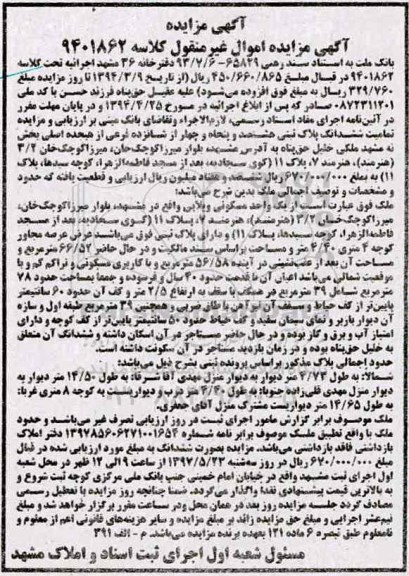 آگهی مزایده
آگهی مزایده اموال غیر منقول کلاسه ۹۴۰۱۸۶۲
بانک ملت به استناد سند رهنی ۶۵۸۲۹-۹۳/۲/۶ دفترخانه ۳۶ مشهد اجرائیه تحت کلاسه
۹۴۰۱۸۶۲ در قبال مبلغ ۴۵۰/۶۶۰/۸۶۵ ریال (از تاریخ ۱۳۹۴/۳/۹ تا روز مزایده مبلغ
۳۲۹/۷۶۰ ریال به مبلغ فوق افزوده می‌شود) علیه عقیل حق‌پناه فرزند حسن با کد ملی
۰۸۷۲۳۱۱۲۰۱ صادر که پس از ابلاغ اجرائیه در مورخ ۱۳۹۴/۴/۲۵ و در پایان مهلت مقرر
در آئین‌نامه اجرای مفاد اسناد رسمی، لازم‌الاجراء وتقاضای بانک مبنی بر ارزیابی و مزایده
تمامیت ششدانگ پلاک ثبتی هشتصد و پنجاه و چهار از شانزده فرعی از هیجده اصلی بخش
نه مشهد ملکی خلیل حق‌پناه به آدرس مشهد، بلوار میرزاکوچک‌خان، میرزاکوچک‌خان ۳/۲
(هنرمند)، هنرمند ۷، پلاک ۱۱ (کوی سجادیه، بعد از مسجد فاطمه‌الزهرا، کوچه سیدها، پلاک
۱۱) به بمبلغ ۶۷۰/۰۰۰/۰۰۰ ریال ششصد و هفتاد میلیون ریال ارزیابی و قطعیت یافته که حدود
و مشخصات و توصیف اجمالی ملک بدین شرح می‌باشد:
ملک فوق عبارت است از یک واحد مسکونی ویلایی واقع در مشهد، بلوار میرزاکوچک‌خان،
میرزاکوچک‌خان ۳/۲ (هنرمند)، هنرمند ۷، پلاک ۱۱ (کوی سجادیه، بعد از مسجد
فاطمه‌الزهرا، کوچه سیدها، پلاک ۱۱) و دارای پلاک ثبتی فوق می‌باشد عرض عرصه مجاور
کوچه ۴ متری ۴/۴۰ متر و مساحت براساس سند مالکیت و در حال حاضر ۶۶/۵۲ مترمربع و
مساحت آن بعد از عقب‌نشینی در آینده ۵۶/۵۸ مترمربع و با کاربری مسکونی و تراکم کم و با
موقعیت شمالی می‌باشد اعیان آن با قدمت حدود ۴۰ سال و فرسوده و جمعا بمساحت حدود ۷۸
مترمربع شامل ۳۹ مترمربع در همکف با سقف به ارتفاع ۲/۵ متر و کف آن حدود ۶۰ سانتیمتر
پایین‌تر از کف حیاط و سقف آن تیرآهن با طاق ضربی و همچنین ۳۹ مترمربع طبقه اول و سازه
آن دیوار باربر و نمای سیمان سفید و کف حیاط حدود ۵۰ سانتیمتر پایین‌تر از کف کوچه و دارای
امتیاز آب و برق و گاز بوده و در حال حاضر مستاجر در آن اسکان داشته و ششدانگ آن متعلق
به خلیل حق‌پناه بوده و در زمان بازدید مستاجر در آن سکونت داشته است.
حدود اجمالی پلاک مذکور براساس پرونده ثبتی بشرح ذیل می‌باشد:
شمالا: به طول ۴/۷۳ متر دیوار به دیوار منزل مهدی آقا شرقا: به طول ۱۴/۵۰ متر دیوار به
دیوار منزل مهدی قلی‌زاده جنوبا: به طول ۴/۴۰ متر درب و دیواریست به کوچه ۸ متری غربا:
به طول ۱۴/۶۵ متر دیواریست مشترک منزل آقای جعفری.
ملک موصوف برابر گزارش مامور اجرای ثبت در روز ارزیابی تصرف غیر می‌باشد و حدود
ملک با واقع تطبیق ملک موصوف برابر نامه شماره ۱۳۹۷۸۵۶۰۶۲۷۱۰۰۱۶۵۴ دفتر املاک
بازداشتی فاقد بازداشتی می‌باشد. مزایده بصورت ششدانگ به مبلغ مورد ارزیابی شده در قبال
مبلغ ۶۷۰/۰۰۰/۰۰۰ ریال در روز سه‌شنبه ۱۳۹۷/۵/۲۳ از ساعت ۹ الی ۱۲ ظهر در محل شعبه
اول اجرای ثبت مشهد واقع در خیابان امام خمینی جنب بانک ملی مرکزی کوچه ثبت شروع و
به بالاترین قیمت پیشنهادی نقدا واگذار می‌گردد. ضمنا چنانچه روز مزایده با تعطیل رسمی
مصادف گردد جلسه مزایده روز بعد در همان محل ودر ساعت مقرر برگزار خواهد شد و مبلغ
نیم‌عشر اجرایی و مبلغ حق مزایده زائد بر مبلغ مزایده و سایر هزینه‌های قانونی اعم از معلوم و
نامعلوم طبق تبصره ۶ ماده ۱۲۱ بعهده برنده مزایده می‌باشد. م - الف ۳۹۱
مسئول شعبه اول اجرای ثبت اسناد و املاک مشهد